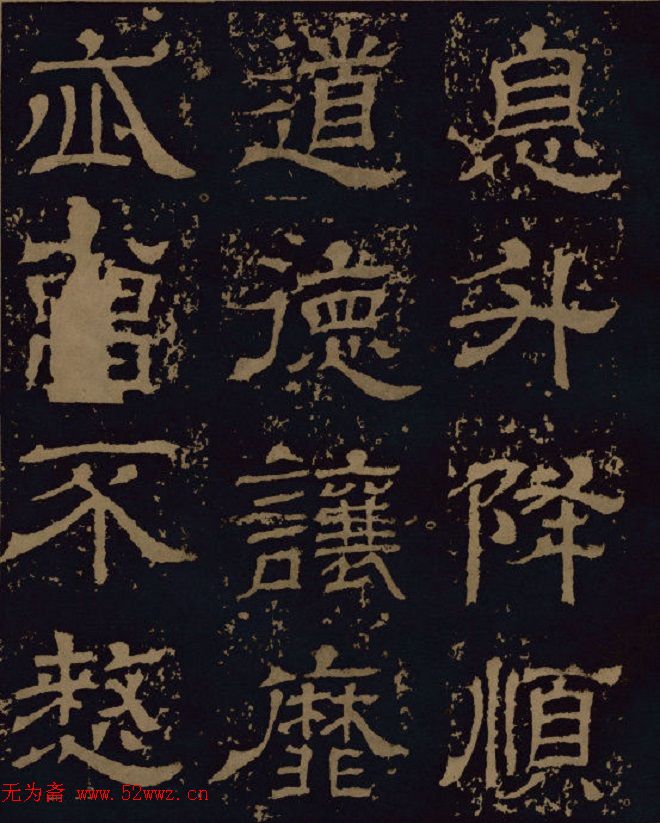 息升降順
道德讓靡
亦不憖
无为斋 www.52wwz.cn